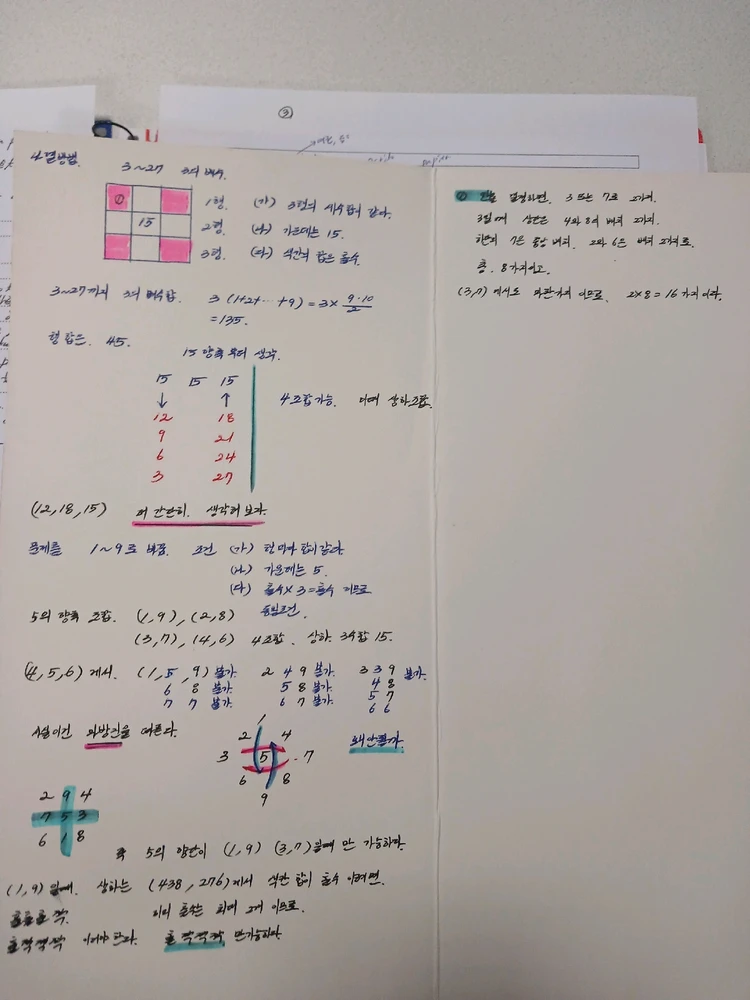 ③
4결방법. 3~27 3의 배수.
① 15
1형. (가) 3형의 세수합이 같다.
2형. (나) 가운데는 15.
3형. (다) 색칸의 합은 홀수
3~27까지 3의 배수합. 3(1+2+…+9) = 3× 9·10/2
=135.
형합은 45.
15 양쪽부터 생각.
15 15 15
↓ ↑
12 18
9 21
6 24
3 27
4조합가능. 상하조합.
(12,18,15) 더 간단히. 생각해보자.
문제를 1~9로 바꿈. 조건 (가) 형마다 합이 같다
(나) 가운데는 5.
(다) 홀수×3=홀수 이므로
동일조건.
5의 양쪽 조합. (1,9), (2,8)
(3,7), (4,6) 4조합. 상하 3수합 15.
(4,5,6)에서. (1,5,9)불가. 2 4 9 불가. 3 3 9 불가.
6 8 불가. 5 8 불가. 4 8
7 7 불가. 6 7 불가. 5 7
6 6
사실이건 마방진을 따른다.
1
2 4
3 5 7
6 8
9
왜안될까.
2 9 4
7 5 3
6 1 8
즉 5의 양단이 (1,9) (3,7)일때만 가능하다.
(1,9)일때. 상하는 (438,276)에서 색칸 합이 홀수 이려면.
홀홀홀짝. 이미 홀수는 최대 2개 이므로.
홀짝짝짝 이어야 한다. 홀짝짝짝 만가능하다.
① 결정하면. 3 또는 7로 2가지.
3일때 상단은 4와 8의 배치 2가지.
하단의 7은 중앙 배치. 2와 6은 배치 2가지로.
총. 8가지이고.
(3,7)에서도 마찬가지 이므로. 2×8=16가지이다.